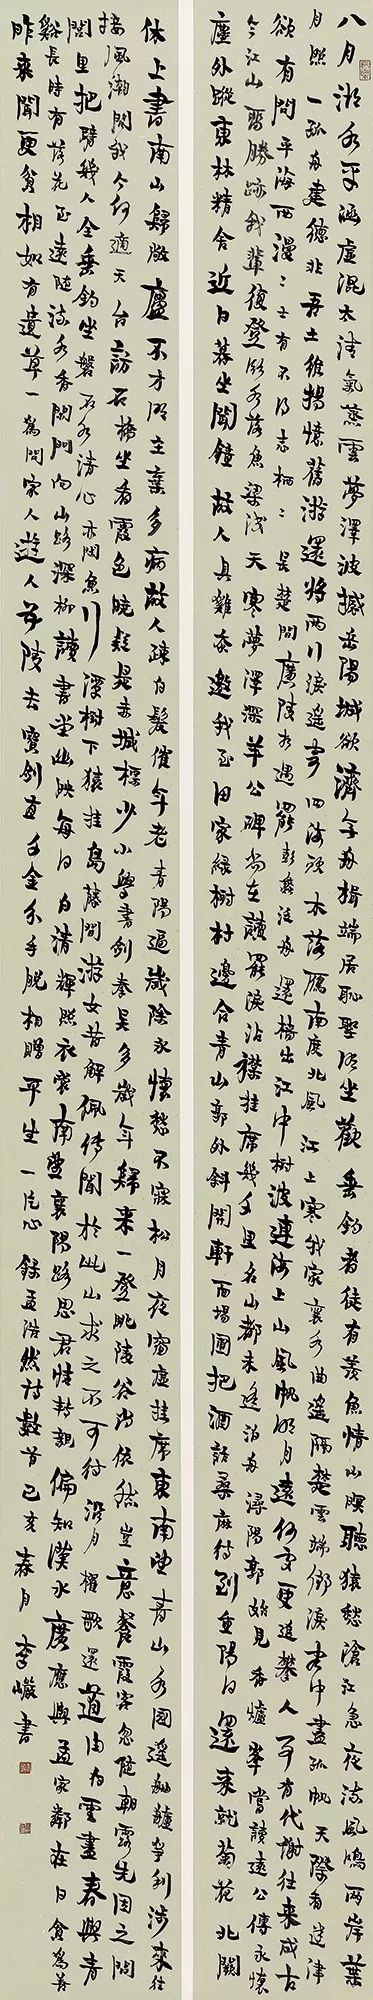 八月湖水平涵虛混太清氣蒸雲夢澤波撼岳陽城欲濟無舟楫端居恥聖明坐觀垂釣者徒有羨魚情山暝聽猿愁滄江急夜流風鳴兩岸葉
月照一孤舟建德非吾土維揚憶舊遊還將兩行淚遙寄西海頭木落雁南度北風江上寒我家襄水曲遙隔楚雲端鄉淚客中盡孤帆天際看迷津
欲有問平海西漫漫士有不得志栖栖吳楚間廣陵相遇罷彭蠡泛舟還檣出江中樹波連海上山風帆明月遠何處更追攀人事有代謝往來成古
今江山留勝跡我輩復登臨水落魚梁淺天寒夢澤深羊公碑尚在讀罷淚沾襟挂席幾千里名山都未逢泊舟潯陽郭始見香爐峯嘗讀遠公傳永懷
塵外蹤東林精舍近日暮坐聞鐘故人具雞黍邀我至田家綠樹村邊合青山郭外斜開軒面場圃把酒話桑麻待到重陽日還來就菊花北闕
休上書南山歸敝廬不才明主棄多病故人疎白髮催年老青陽逼歲除永懷愁不寐松月夜窗虛挂席東南望青山水國遙舳艫爭利涉來往
接風潮問我今何適天台訪石橋坐看霞色晚疑是赤城標少小學書劍秦吳多歲年歸來一登眺陵谷尚依然豈意餐霞客忽隨朝露先因之問
閭里把臂幾人全垂釣坐磐石水清心亦閑魚行潭樹下猿挂島藤間游女昔解佩傳聞於此山求之不可得沿月櫂歌還道由白雲盡春與青
谿長時有落花至遠隨流水香閑門向山路深柳讀書堂幽映每白日清輝照衣裳南望襄陽路思君情轉親偏知漢水廣應與孟家鄰在日貪為善
昨來聞更貧相如有遺草一為問家人遊人五陵去寶劍直千金分手脫相贈平生一片心錄孟浩然詩數首己亥春月李巖書